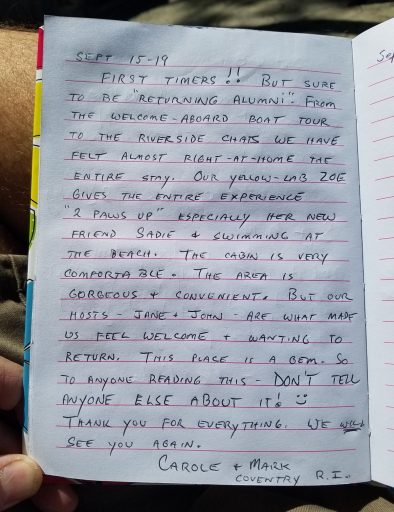 SEPT 15-19
FIRST TIMERS!! BUT SURE
TO BE "RETURNING ALUMNI". FROM
THE WELCOME-ABOARD BOAT TOUR
TO THE RIVERSIDE CHATS WE HAVE
FELT ALMOST RIGHT-AT-HOME THE
ENTIRE STAY. OUR YELLOW-LAB ZOE
GIVES THE ENTIRE EXPERIENCE
"2 PAWS UP" ESPECIALLY HER NEW
FRIEND SADIE & SWIMMING AT
THE BEACH. THE CABIN IS VERY
COMFORTABLE. THE AREA IS
GORGEOUS + CONVENIENT. BUT OUR
HOSTS - JANE + JOHN - ARE WHAT MADE
US FEEL WELCOME + WANTING TO
RETURN. THIS PLACE IS A GEM. SO
TO ANYONE READING THIS - DON'T TELL
ANYONE ELSE ABOUT IT! :)
THANK YOU FOR EVERYTHING. WE WILL
SEE YOU AGAIN.
CAROLE + MARK
COVENTRY R.I.